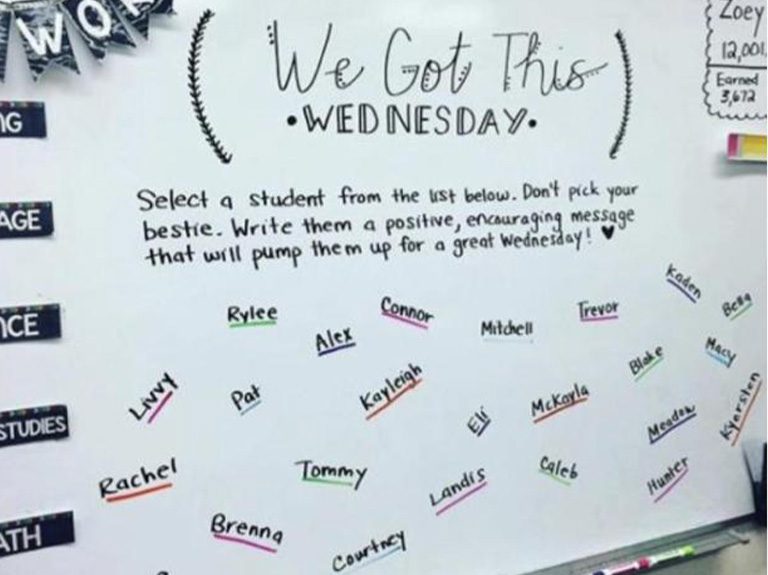 WO
Zoey
12,001
Earned
3,672
NG
AGE
NCE
STUDIES
ATH
We Got This
•WEDNESDAY•
Select a student from the list below. Don't pick your
bestie. Write them a positive, encouraging message
that will pump them up for a great Wednesday! ♥
Kaden
Rylee
Connor
Trevor
Bella
Alex
Mitchell
Livvy
Pat
Kayleigh
Blake
Macy
Eli
McKayla
Meadow
Kyersten
Rachel
Tommy
Landis
Caleb
Hunter
Brenna
Courtney